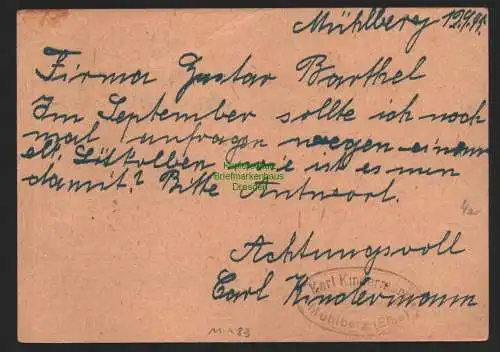 Mühlberg 12.9.
Firma Gustav Barthel
Im September sollte ich noch
mal anfragen wegen einem
elt. Lötkolben, wie ist es nun
damit? Bitte Antwort.
Achtungsvoll
Carl Kindermann
Karl Kindermann
Mühlberg (Elbe)
Briefmarkenhaus
Dresden